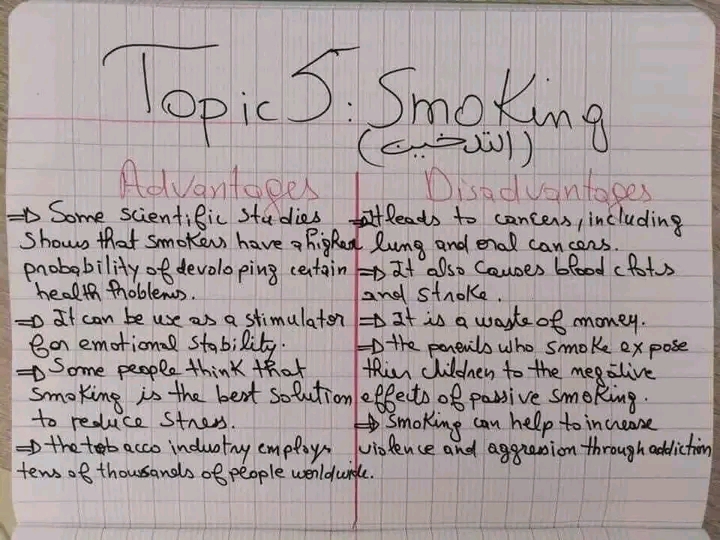 Topic 5: Smoking
(التدخين)
Advantages
=> Some scientific studies
shows that smokers have a higher
probability of devoloping certain
health problems.
=> It can be use as a stimulator
for emotional stability.
=> Some people think that
smoking is the best solution
to reduce stress.
=> the tobacco industry employs
tens of thousands of people worldwide.
Disadvantages
=> It leads to cancers, including
lung and oral cancers.
=> It also causes blood clots
and stroke.
=> It is a waste of money.
=> the parents who smoke expose
thier children to the negative
effects of passive smoking.
=> smoking can help to increase
violence and aggression through addiction